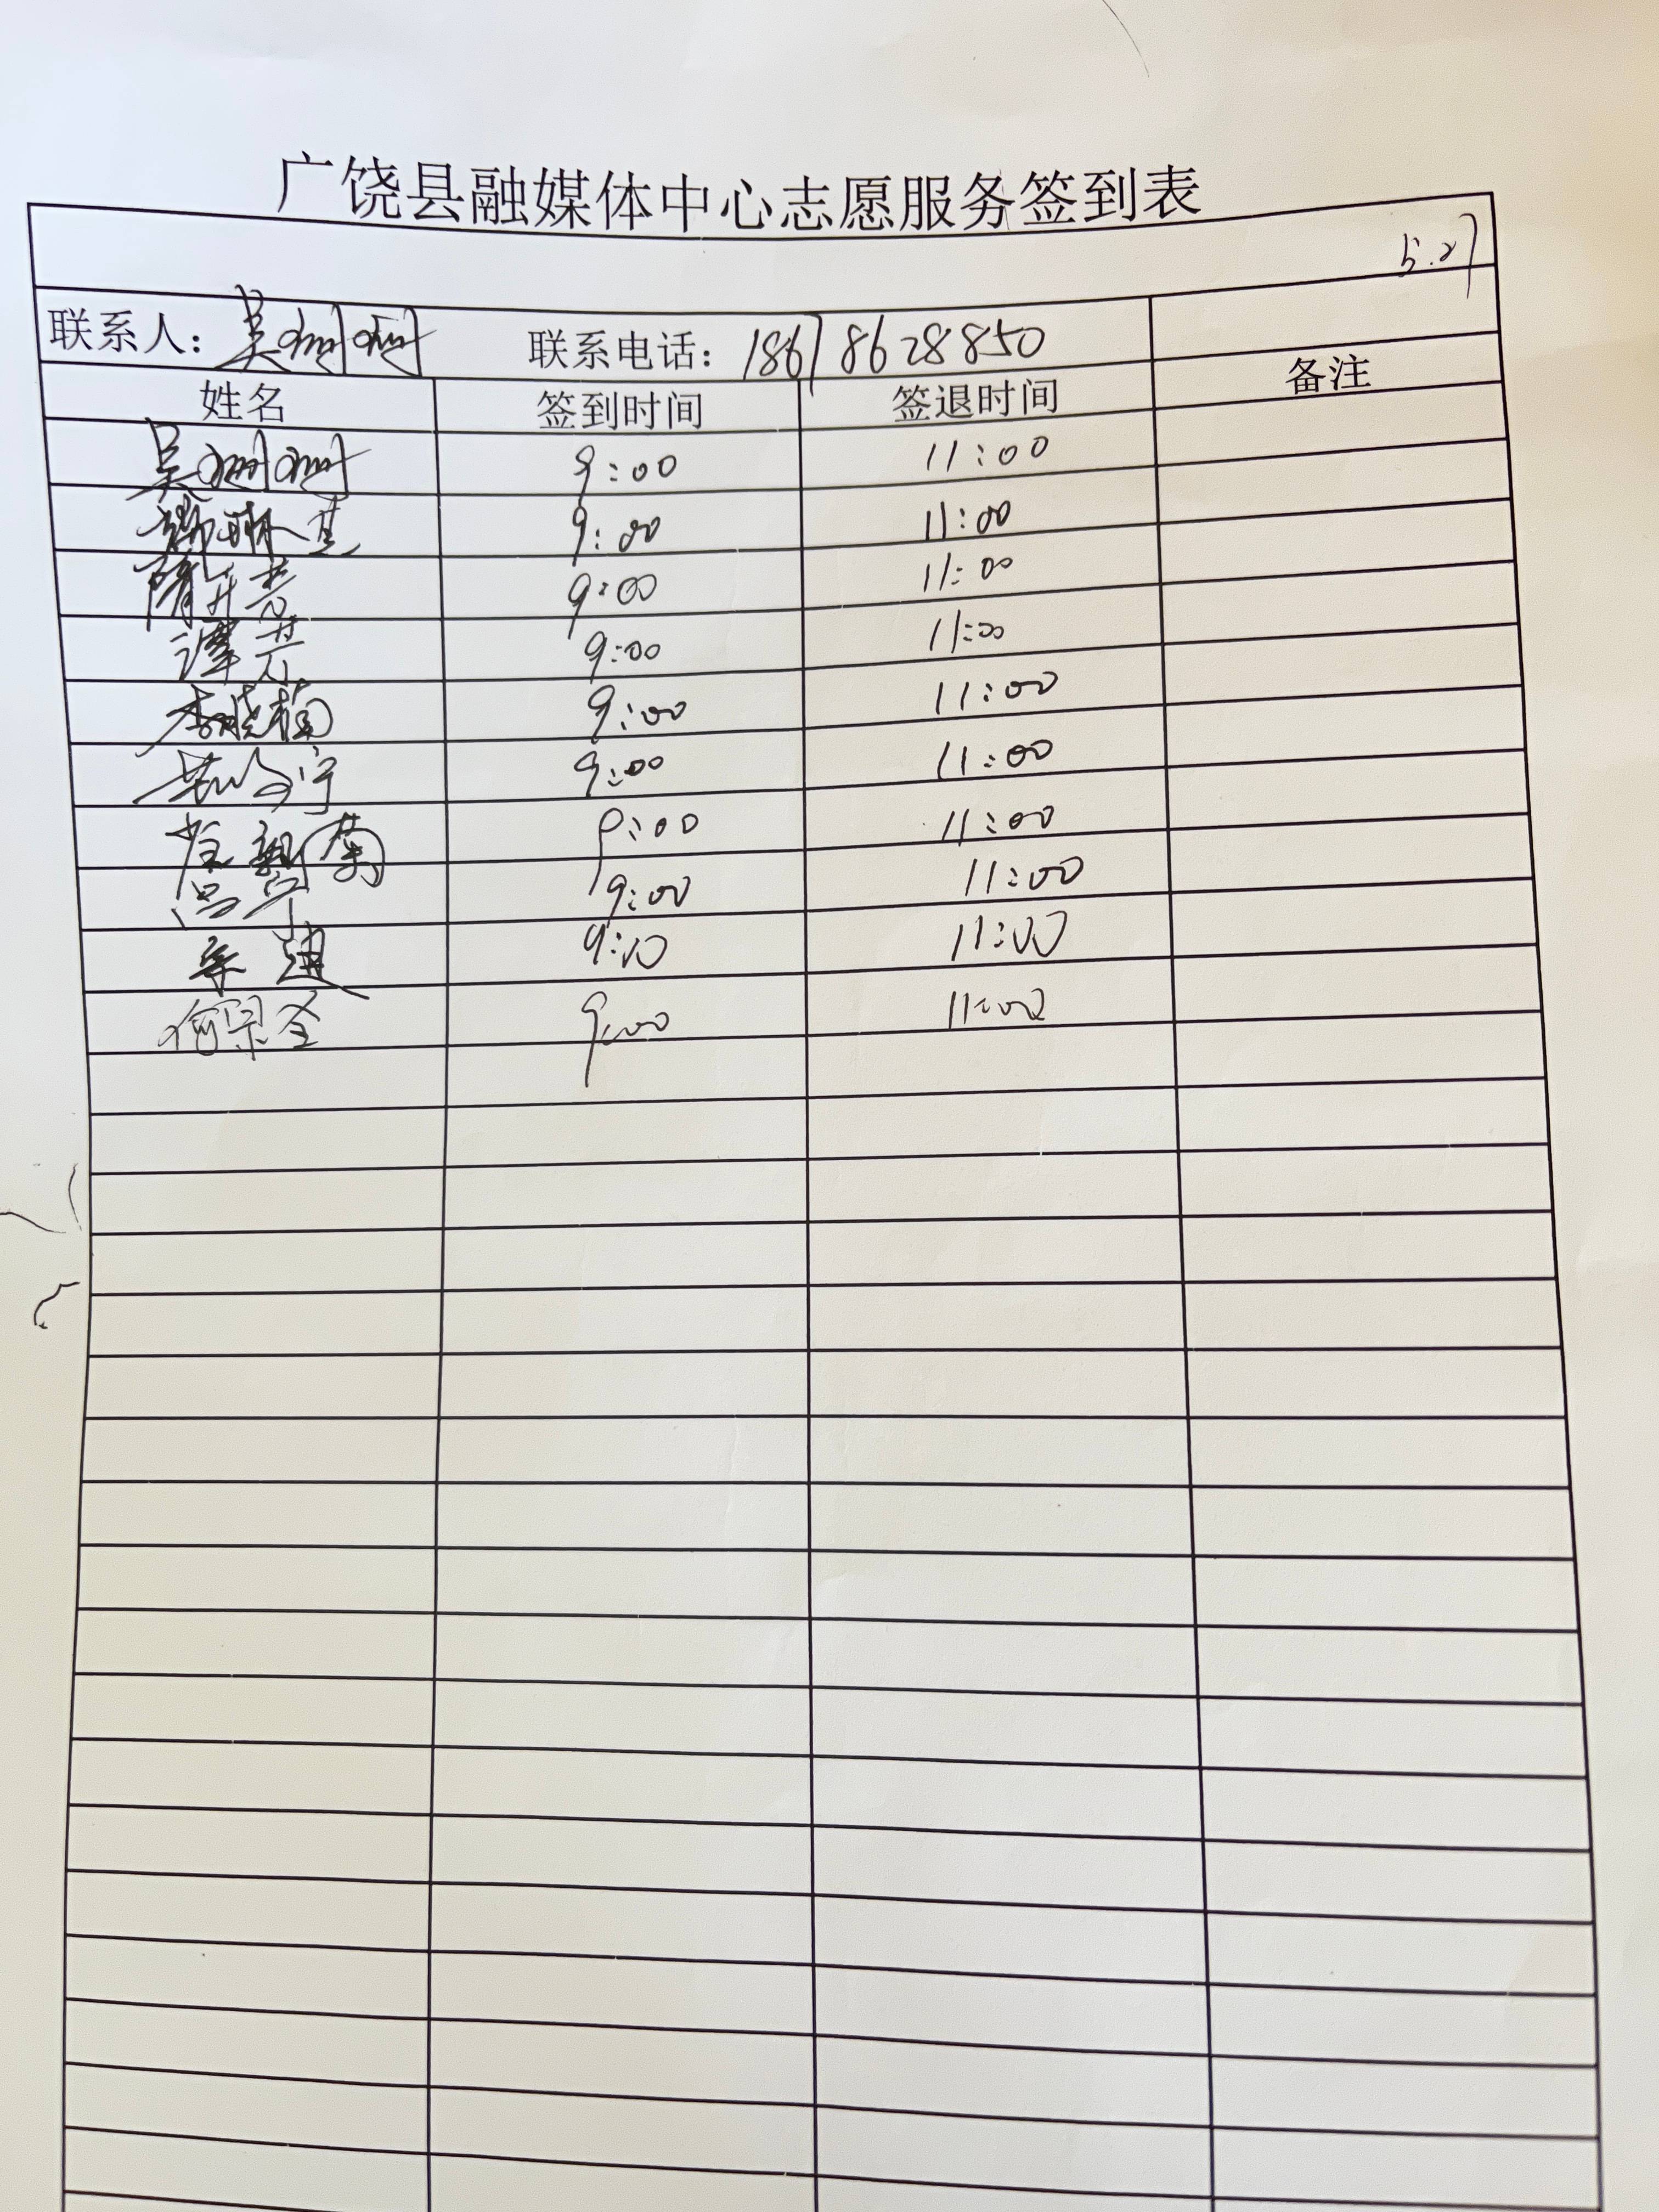 广饶县融媒体中心志愿服务签到表
5.27
联系人：吴姗姗 联系电话：18678628850
姓名 签到时间 签退时间 备注
吴姗姗 9:00 11:00
9:00 11:00
隋开亮 9:00 11:00
谭芸 9:00 11:00
李晓楠 9:00 11:00
9:00 11:00
9:00 11:00
吕宁 9:00 11:00
李迪 9:10 11:00
何景全 9:00 11:00